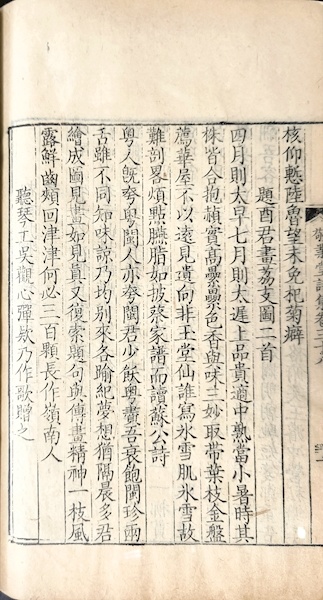 核仰慙陸魯望未免杞菊癖
題酉君畫荔支圖二首
四月則太早七月則太遲上品貴適中熟當小暑時其
株皆合抱積實高疊疊色香與味三妙取帶葉枝金盤
薦華屋不以遠見遺向非玉堂仙誰寫冰雪肌冰雪故
難剖畧煩點臙脂如披蔡家譜而讀蘇公詩
粵人旣夸粵閩人亦夸閩君少飫粵賣吾衰飽閩珍兩
舌雖不同知味諒乃均別來各踰紀夢想猶隔晨多君
繪成圖見畫如見真又復索題句與傳畫精神一枝風
露鮮齒頰回津津何必三百顆長作嶺南人
聽琴工吳觀心彈欸乃作歌贈之
敬業堂詩集卷三